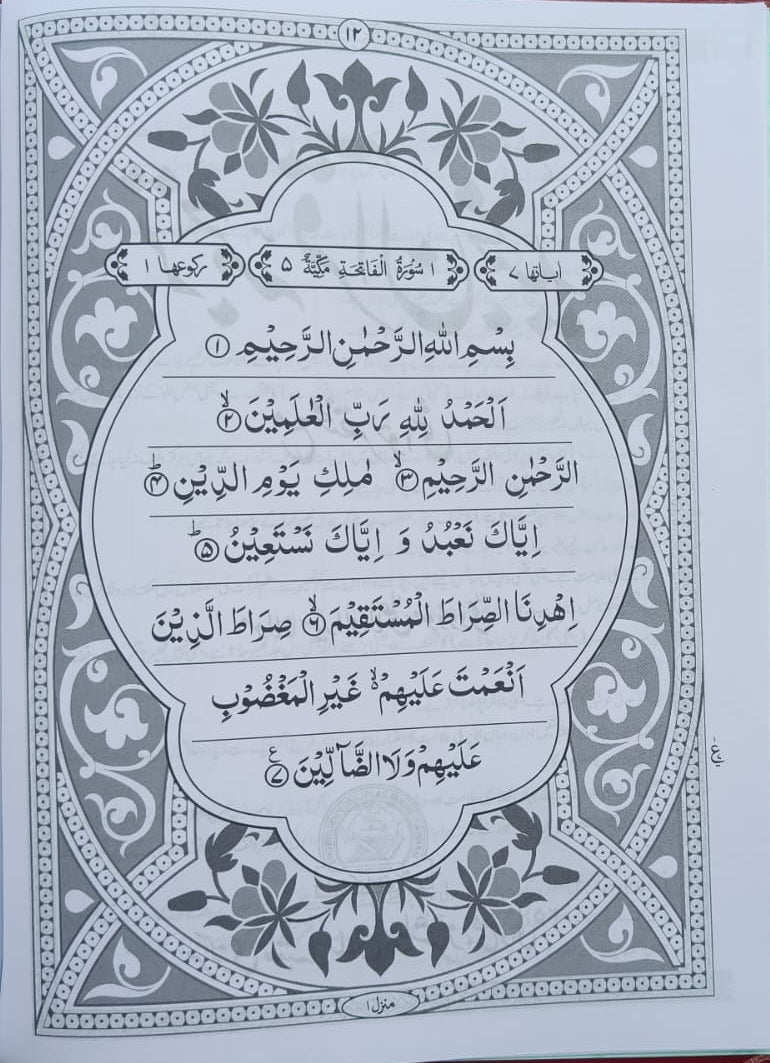 ۱۲
اٰیاتها ۷
۱ سُوْرَةُ الْفَاتِحَةِ مَكِّيَّةٌ ۵
رکوعها ۱
بِسْمِ اللّٰهِ الرَّحْمٰنِ الرَّحِيْمِ ۱
اَلْحَمْدُ لِلّٰهِ رَبِّ الْعٰلَمِيْنَ ۙ۲
الرَّحْمٰنِ الرَّحِيْمِ ۙ۳ مٰلِكِ يَوْمِ الدِّيْنِ ؕ۴
اِيَّاكَ نَعْبُدُ وَ اِيَّاكَ نَسْتَعِيْنُ ؕ۵
اِهْدِنَا الصِّرَاطَ الْمُسْتَقِيْمَ ۙ۶ صِرَاطَ الَّذِيْنَ
اَنْعَمْتَ عَلَيْهِمْ ۙ۬ غَيْرِ الْمَغْضُوْبِ
عَلَيْهِمْ وَلَا الضَّآلِّيْنَ ۷ع
منزل ۱